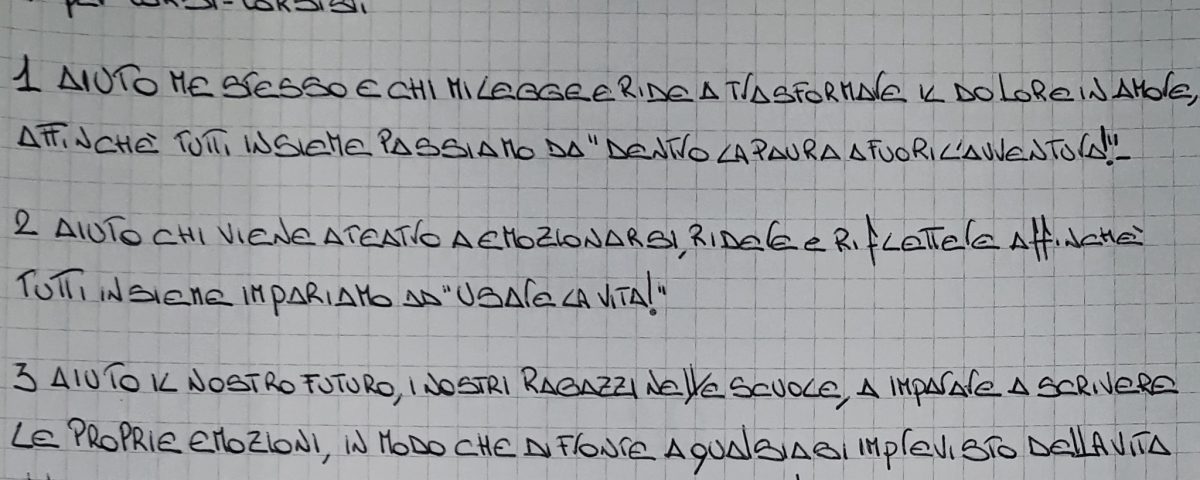 1 AIUTO ME STESSO E CHI MI LEGGE E RIDE A TRASFORMARE IL DOLORE IN AMORE,
AFFINCHÈ TUTTI INSIEME PASSIAMO DA "DENTRO LA PAURA A FUORI L'AVVENTURA!"
2 AIUTO CHI VIENE A TEATRO A EMOZIONARSI, RIDERE E RIFLETTERE AFFINCHÈ
TUTTI INSIEME IMPARIAMO AD "USARE LA VITA!"
3 AIUTO IL NOSTRO FUTURO, I NOSTRI RAGAZZI NELLE SCUOLE, A IMPARARE A SCRIVERE
LE PROPRIE EMOZIONI, IN MODO CHE DI FRONTE A QUALSIASI IMPREVISTO DELLA VITA